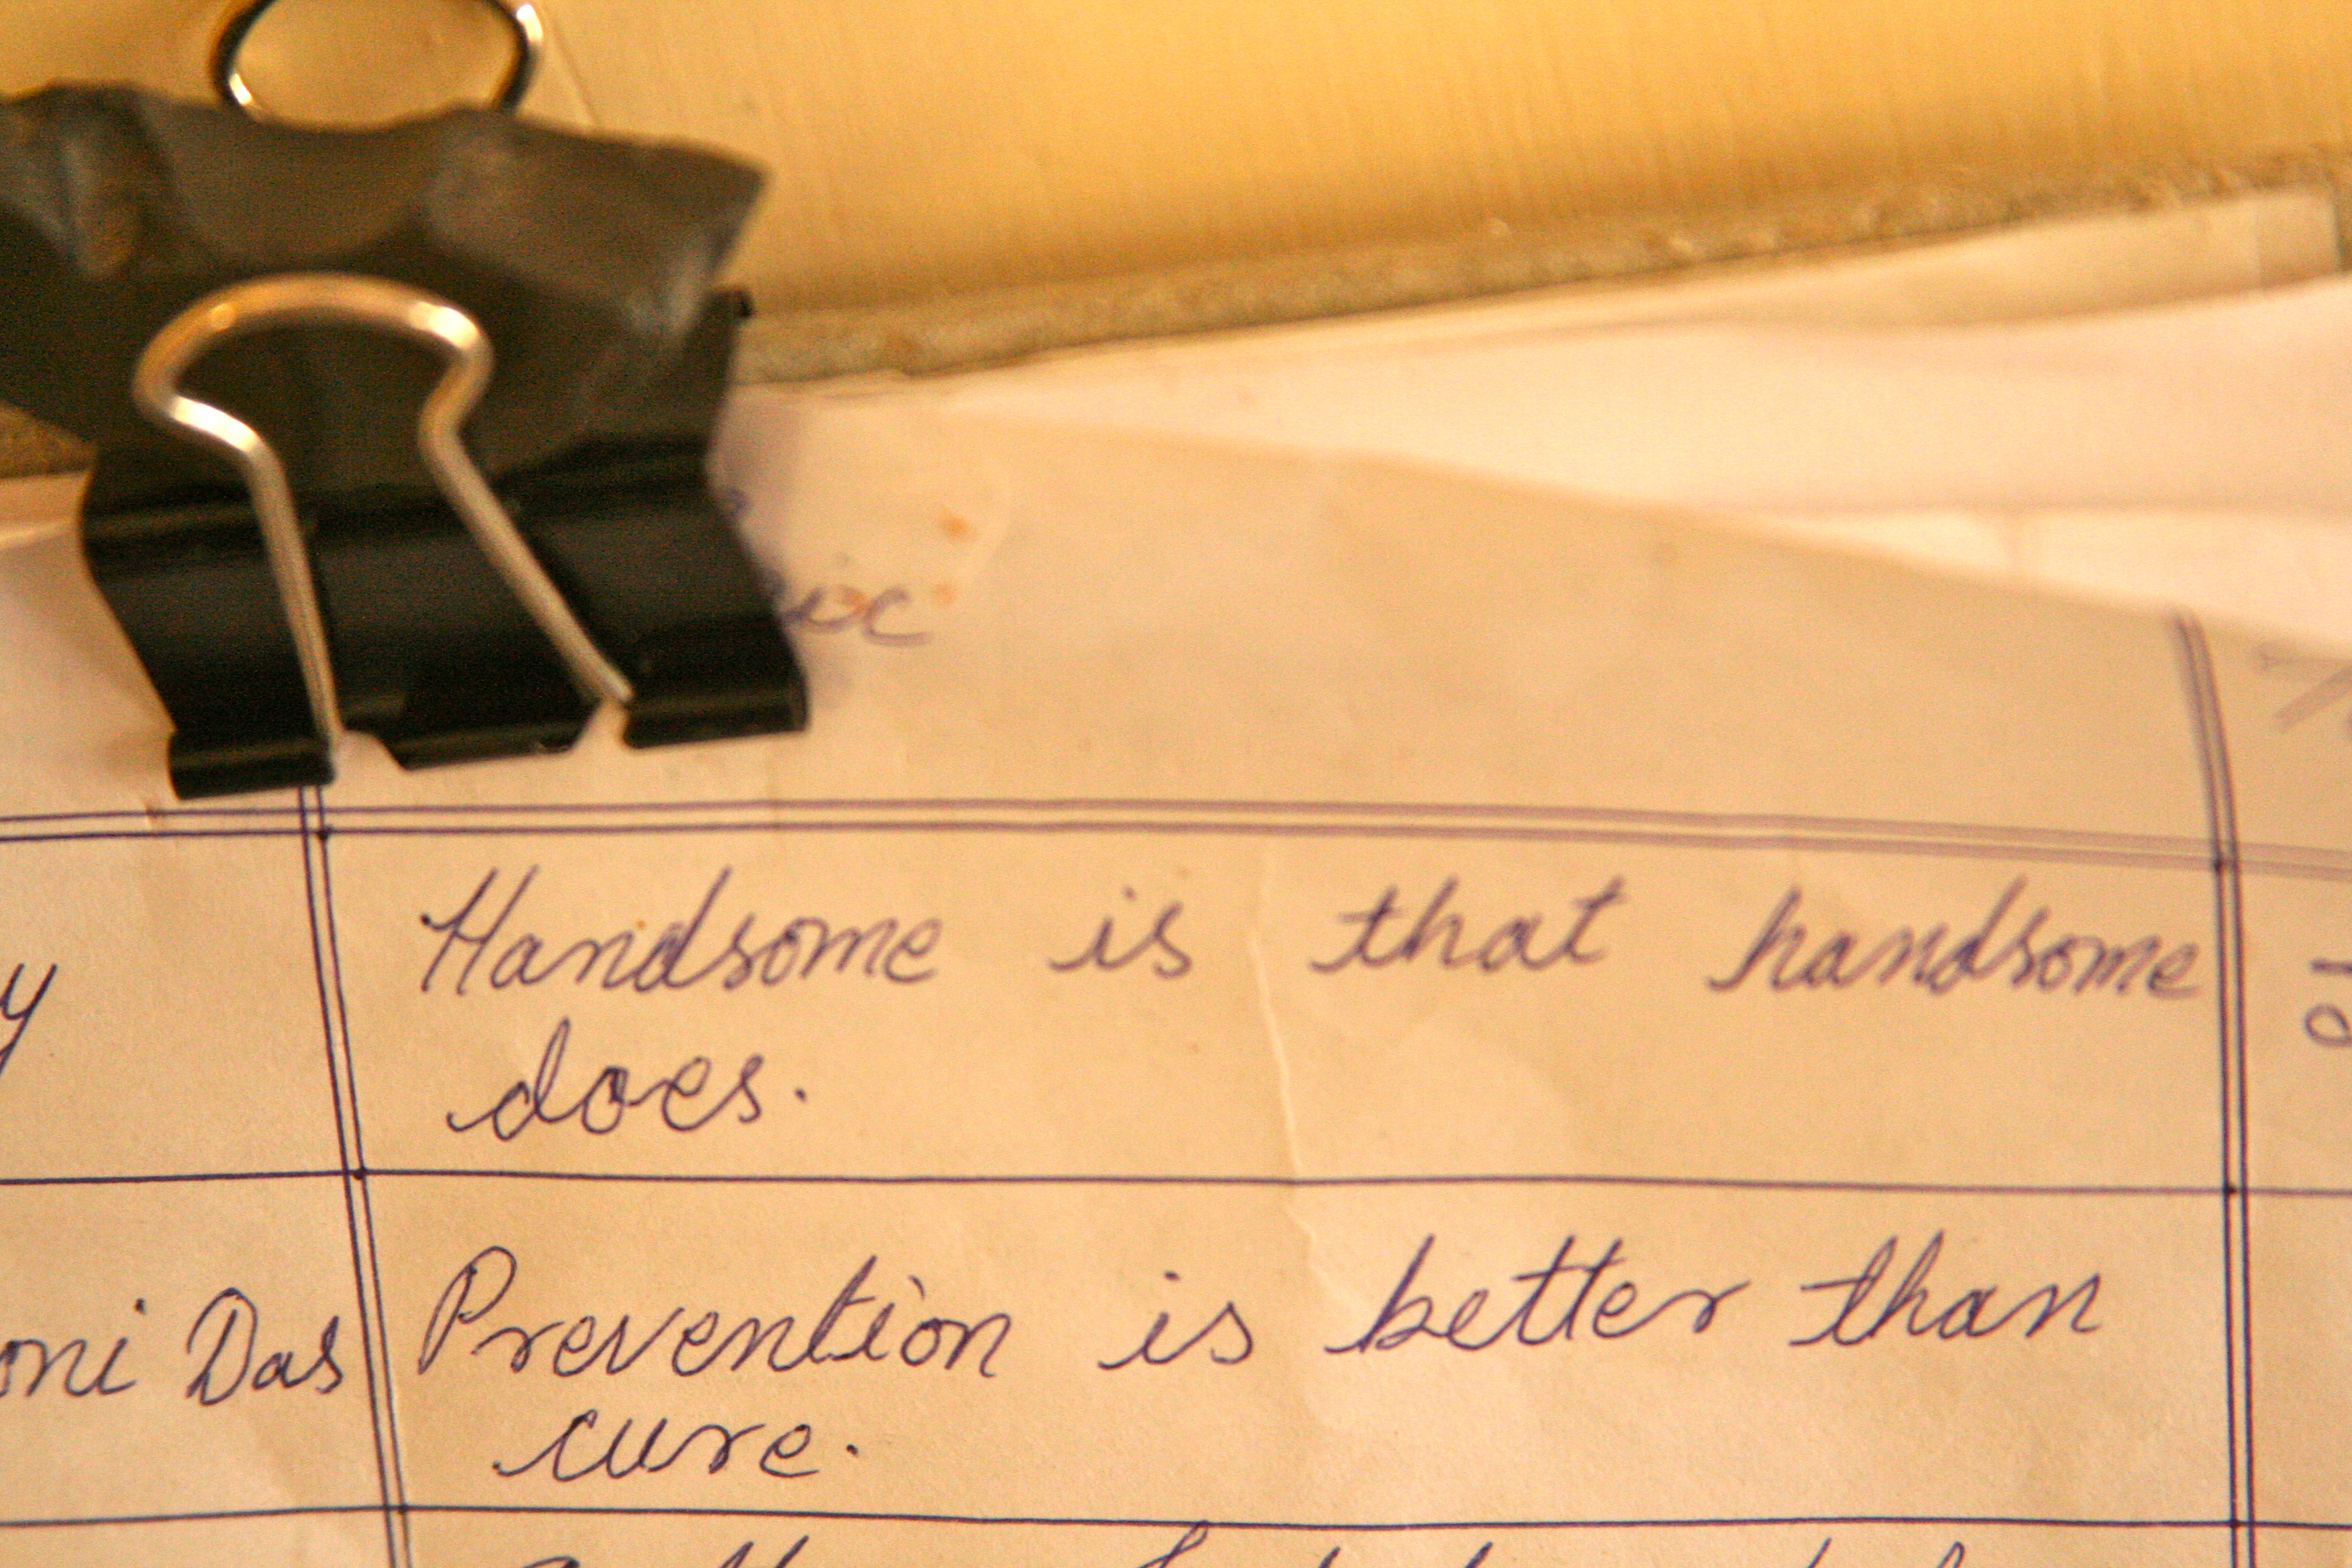 Handsome is that handsome
does.
Das
Prevention is better than
cure.